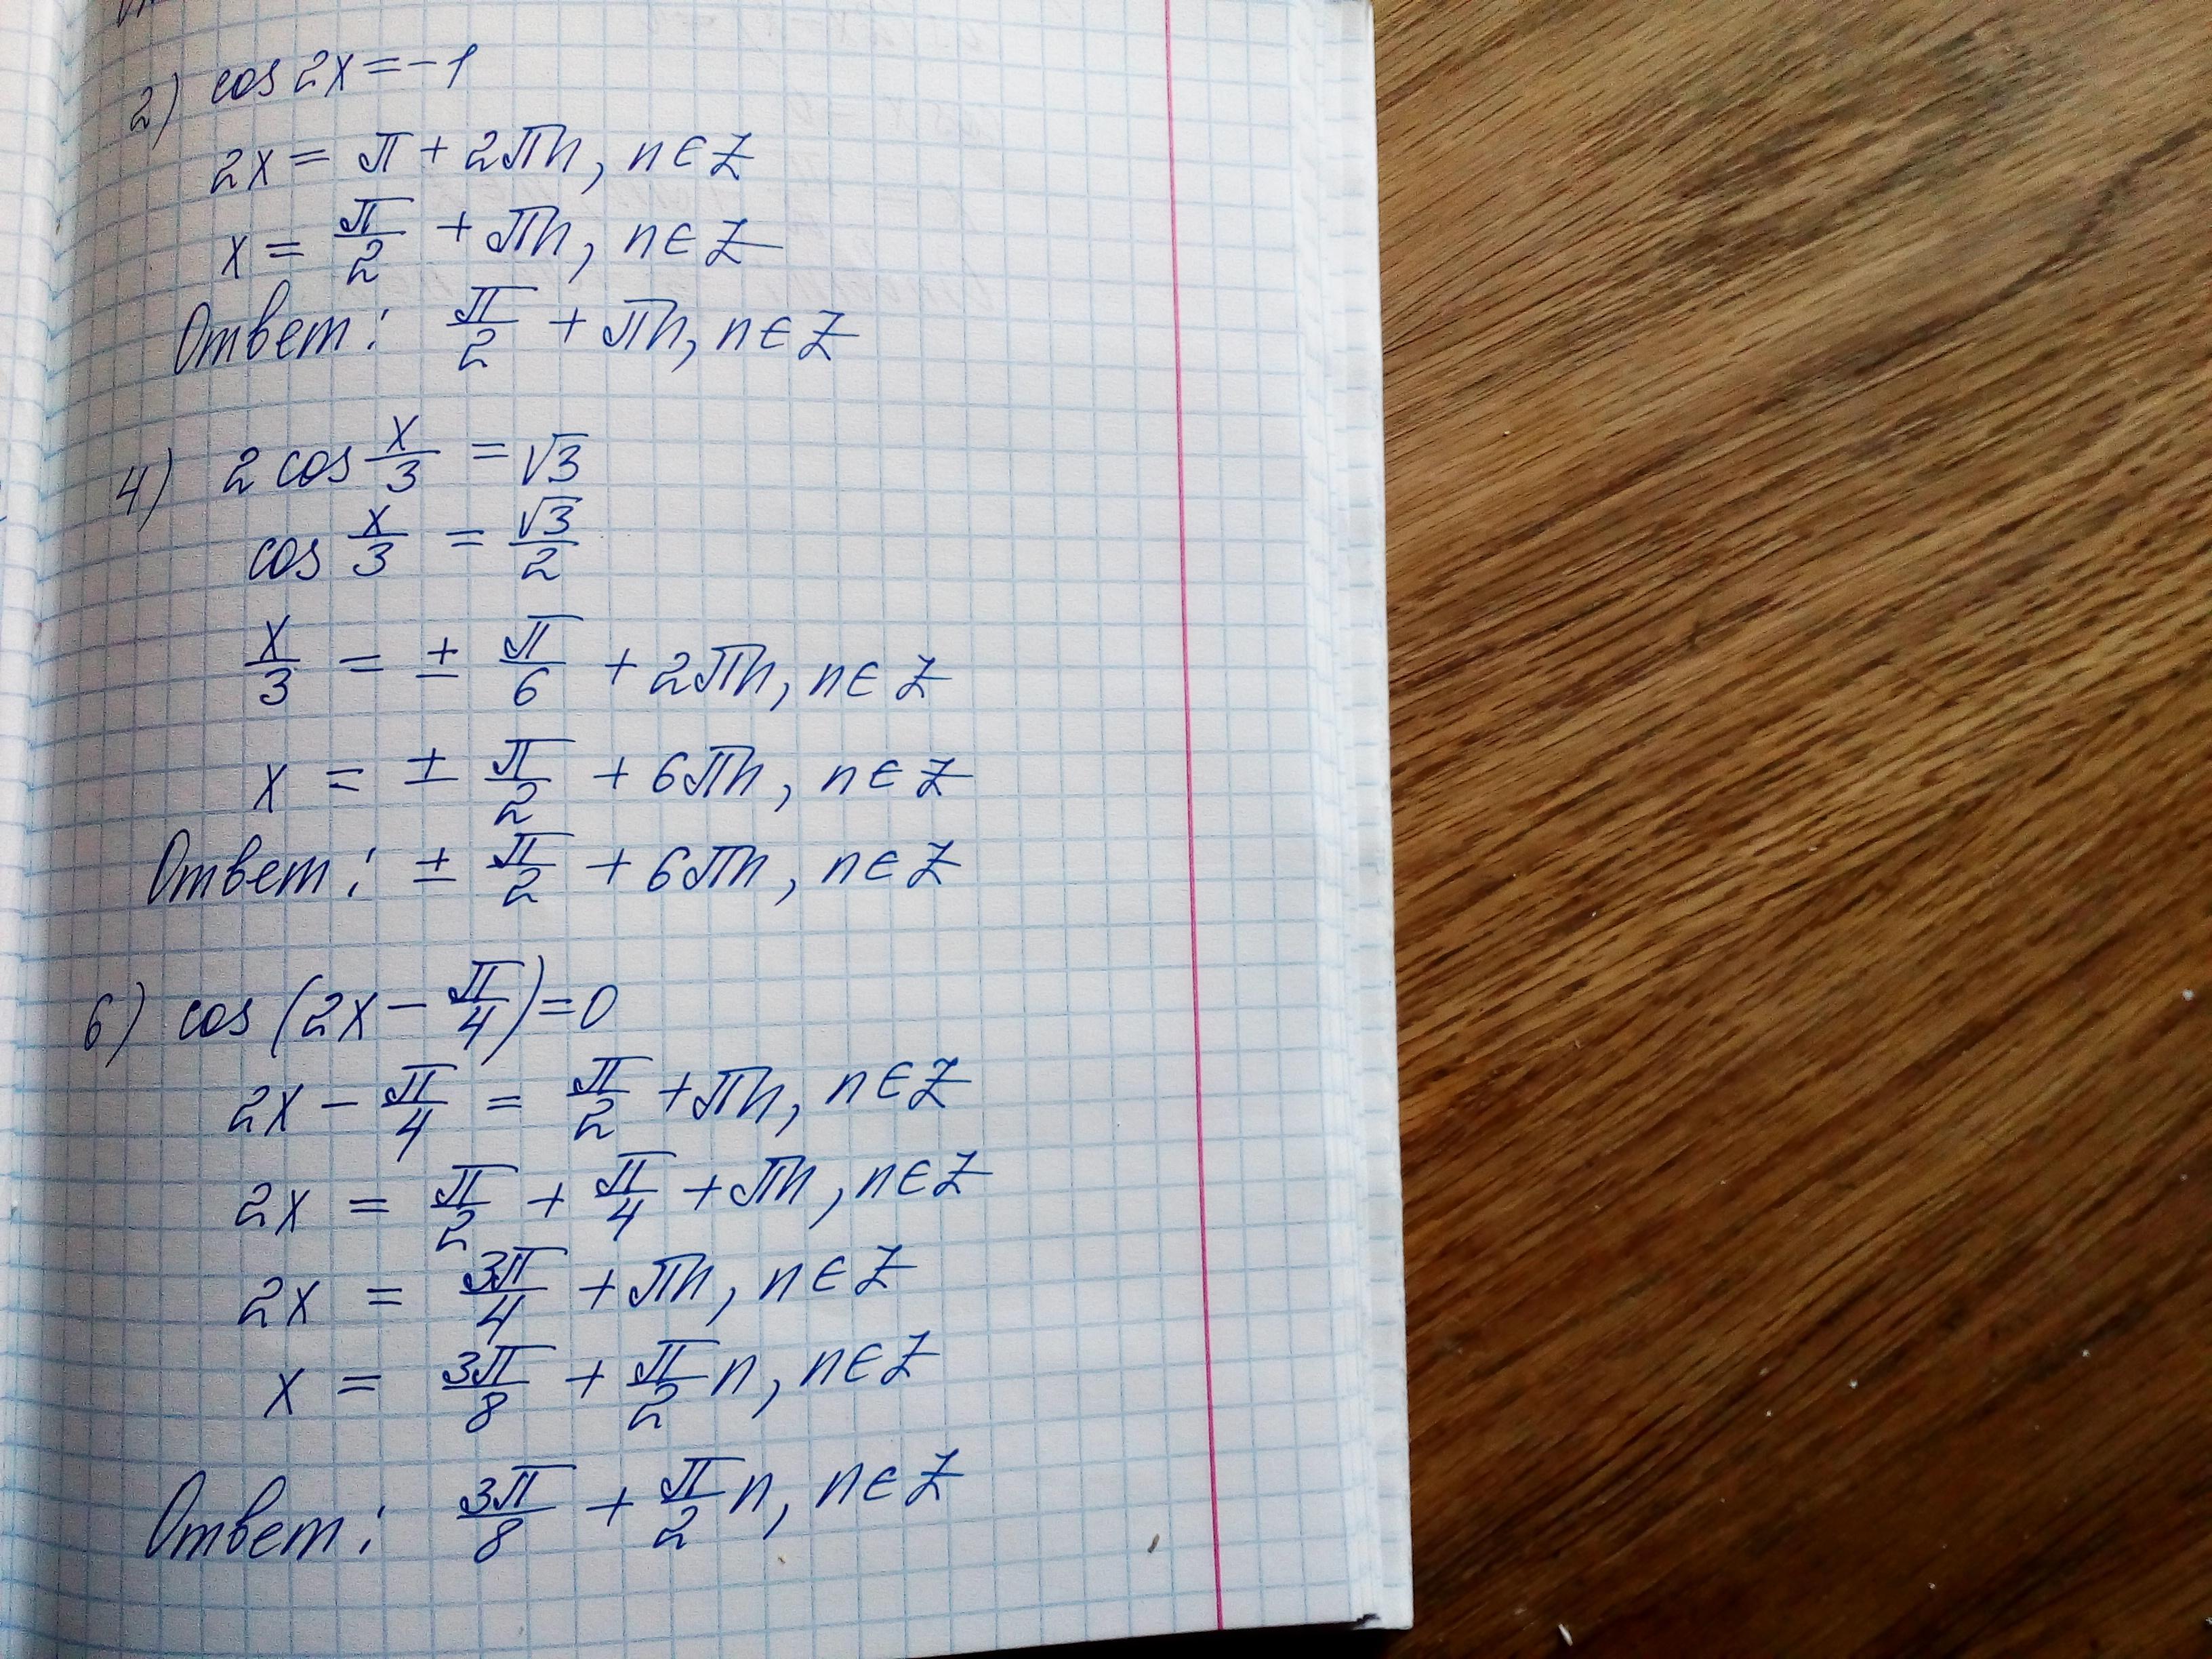 2) cos 2x = -1
2x = π + 2πn, n ∈ Z
x = π/2 + πn, n ∈ Z
Ответ: π/2 + πn, n ∈ Z
4) 2 cos x/3 = √3
cos x/3 = √3/2
x/3 = ± π/6 + 2πn, n ∈ Z
x = ± π/2 + 6πn, n ∈ Z
Ответ: ± π/2 + 6πn, n ∈ Z
6) cos (2x - π/4) = 0
2x - π/4 = π/2 + πn, n ∈ Z
2x = π/2 + π/4 + πn, n ∈ Z
2x = 3π/4 + πn, n ∈ Z
x = 3π/8 + π/2 n, n ∈ Z
Ответ: 3π/8 + π/2 n, n ∈ Z